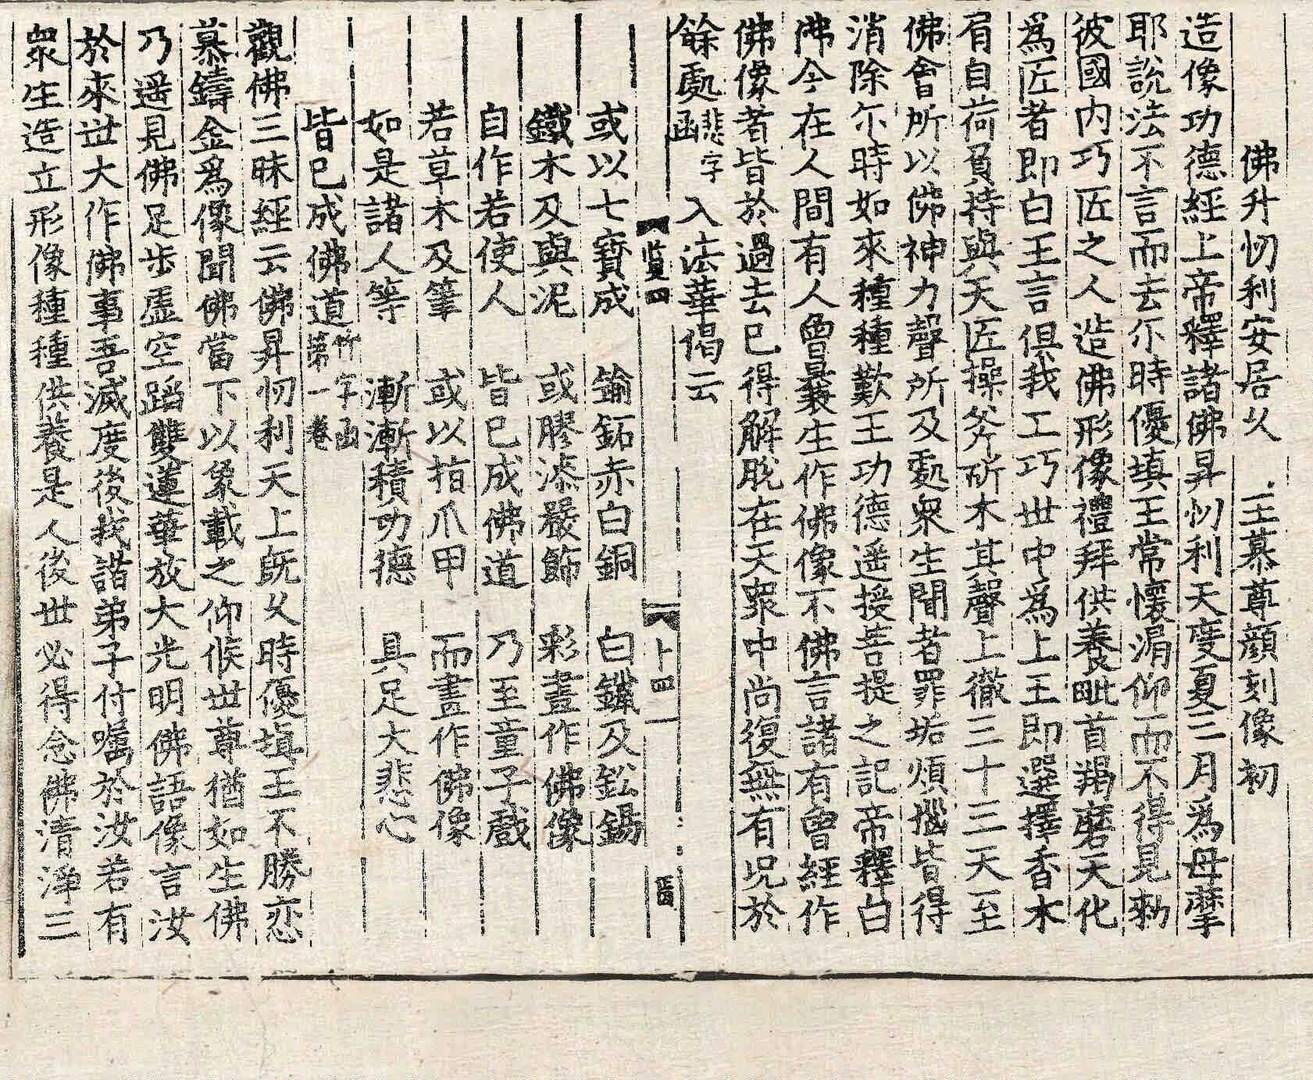 佛升忉利安居乆　王慕尊顔刻像初
造像功德經上帝釋諸佛昇忉利天度夏三月爲母摩
耶說法不言而去尒時優填王常懷渴仰而不得見勑
彼國内巧匠之人造佛形像禮拜供養毗首羯磨天化
爲匠者即白王言但我工巧世中爲上王即選擇香木
肩自荷負持與天匠操斧斫木其聲上徹三十三天至
佛會所以佛神力聲所及處衆生聞者罪垢煩惱皆得
消除尒時如來種種歎王功德遥授菩提之記帝釋白
佛今在人間有人曾曩生作佛像不佛言諸有曾經作
佛像者皆於過去已得解脫在天衆中尚復無有況於
餘處悲字函　入法華偈云
或以七寶成　鍮鉐赤白銅　白鑞及鈆錫
鐵木及與泥　或膠漆嚴飾　彩畫作佛像
自作若使人　皆已成佛道　乃至童子戲
若草木及筆　或以指爪甲　而畫作佛像
如是諸人等　漸漸積功德　具足大悲心
皆已成佛道竹字函第一卷
觀佛三昧經云佛昇忉利天上旣乆時優塡王不勝恋
慕鑄金爲像聞佛當下以象載之仰候世尊猶如生佛
乃遥見佛足步虛空蹈雙蓮華放大光明佛語像言汝
於來世大作佛事吾滅度後我諸弟子付囑於汝若有
衆生造立形像種種供養是人後世必得念佛清淨三